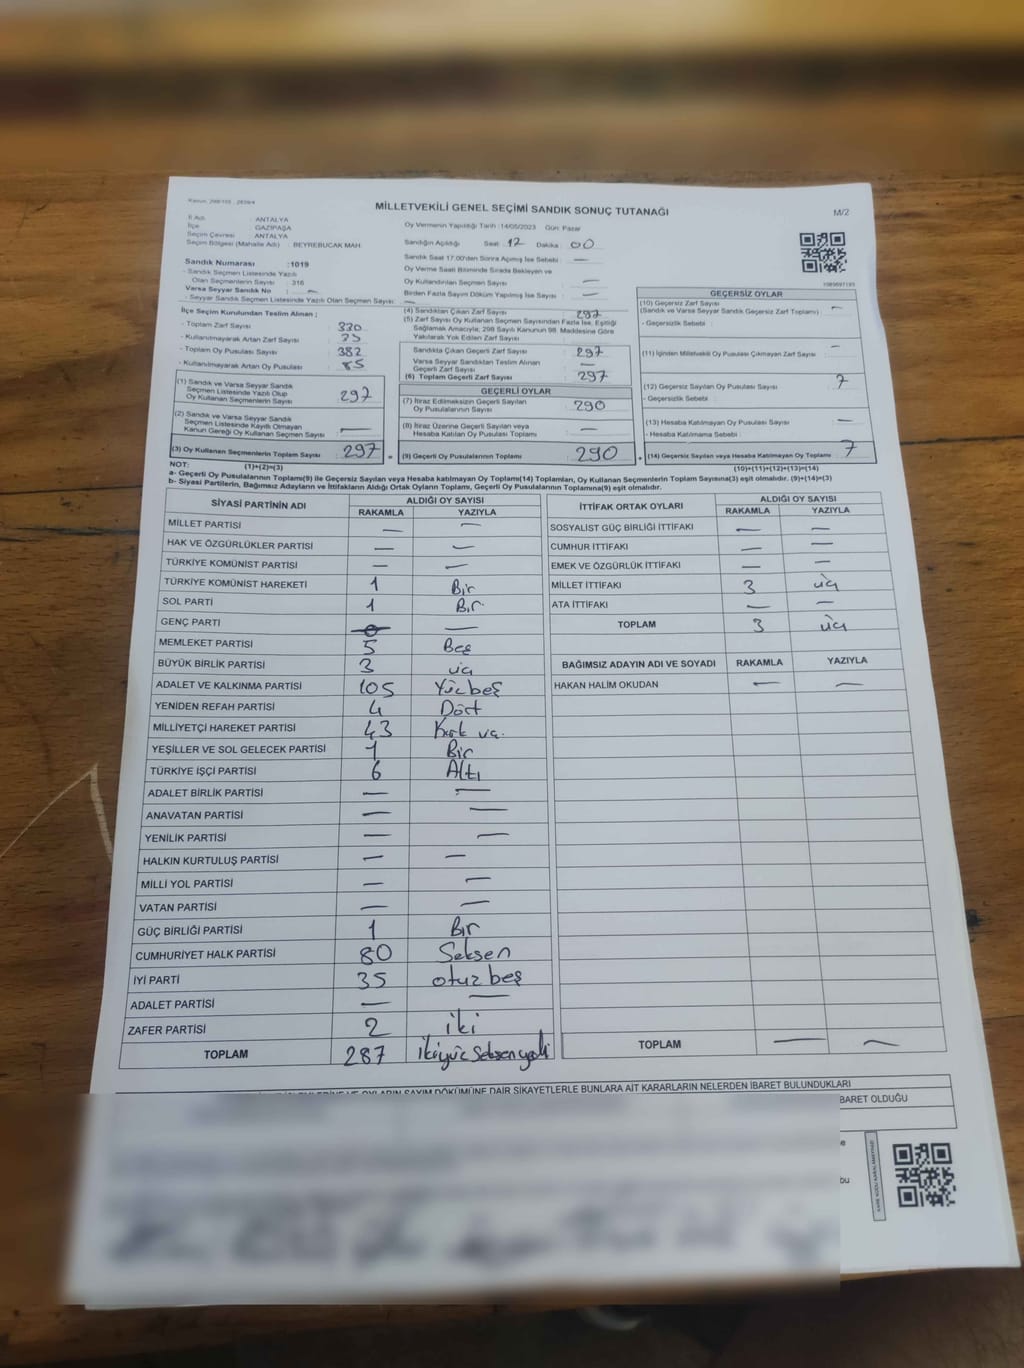 MİLLETVEKİLİ GENEL SEÇİMİ SANDIK SONUÇ TUTANAĞI
M/2
İl Adı : ANTALYA
İlçe : GAZİPAŞA
Seçim Çevresi : ANTALYA
Seçim Bölgesi (Mahalle Adı) : BEYREBUCAK MAH.
Oy Vermenin Yapıldığı Tarih :14/05/2023 Gün: Pazar
Sandığın Açıldığı Saat: 17 Dakika : 00
Sandık Saat 17:00'den Sonra Açılmış İse Sebebi : —
Oy Verme Saati Bitiminde Sırada Bekleyen ve
Oy Kullandırılan Seçmen Sayısı : —
Birden Fazla Sayım Döküm Yapılmış İse Sayısı : —
Sandık Numarası :1019
- Sandık Seçmen Listesinde Yazılı
Olan Seçmenlerin Sayısı : 316
Varsa Seyyar Sandık No : —
- Seyyar Sandık Seçmen Listesinde Yazılı Olan Seçmen Sayısı: —
İlçe Seçim Kurulundan Teslim Alınan ;
- Toplam Zarf Sayısı : 330
- Kullanılmayarak Artan Zarf Sayısı :
- Toplam Oy Pusulası Sayısı : 382
- Kullanılmayarak Artan Oy Pusulası : 85
(1) Sandık ve Varsa Seyyar Sandık
Seçmen Listesinde Yazılı Olup
Oy Kullanan Seçmenlerin Sayısı : 297
(2) Sandık ve Varsa Seyyar Sandık
Seçmen Listesinde Kayıtlı Olmayan
Kanun Gereği Oy Kullanan Seçmen Sayısı : —
(3) Oy Kullanan Seçmenlerin Toplam Sayısı : 297
(4) Sandıktan Çıkan Zarf Sayısı : 297
(5) Zarf Sayısı Oy Kullanan Seçmen Sayısından Fazla İse, Eşitliği
Sağlamak Amacıyla; 298 Sayılı Kanunun 98. Maddesine Göre
Yakılarak Yok Edilen Zarf Sayısı
Sandıkta Çıkan Geçerli Zarf Sayısı : 297
Varsa Seyyar Sandıktan Teslim Alınan
Geçerli Zarf Sayısı : —
(6) Toplam Geçerli Zarf Sayısı : 297
GEÇERLİ OYLAR
(7) İtiraz Edilmeksizin Geçerli Sayılan
Oy Pusulalarının Sayısı : 290
(8) İtiraz Üzerine Geçerli Sayılan veya
Hesaba Katılan Oy Pusulası Toplamı : —
= (9) Geçerli Oy Pusulalarının Toplamı : 290
GEÇERSİZ OYLAR
(10) Geçersiz Zarf Sayısı
(Sandık ve Varsa Seyyar Sandık Geçersiz Zarf Toplamı) : —
- Geçersizlik Sebebi :
(11) İçinden Milletvekili Oy Pusulası Çıkmayan Zarf Sayısı : —
(12) Geçersiz Sayılan Oy Pusulası Sayısı : 7
- Geçersizlik Sebebi :
(13) Hesaba Katılmayan Oy Pusulası Sayısı : —
- Hesaba Katılmama Sebebi :
+ (14) Geçersiz Sayılan veya Hesaba Katılmayan Oy Toplamı : 7
NOT: (1)+(2)=(3) (10)+(11)+(12)+(13)=(14)
a- Geçerli Oy Pusulalarının Toplamı(9) ile Geçersiz Sayılan veya Hesaba katılmayan Oy Toplamı(14) Toplamları, Oy Kullanan Seçmenlerin Toplam Sayısına(3) eşit olmalıdır. (9)+(14)=(3)
b- Siyasi Partilerin, Bağımsız Adayların ve İttifakların Aldığı Ortak Oyların Toplamı, Geçerli Oy Pusulalarının Toplamına(9) eşit olmalıdır.
SİYASİ PARTİNİN ADI ALDIĞI OY SAYISI
RAKAMLA YAZIYLA
MİLLET PARTİSİ — —
HAK VE ÖZGÜRLÜKLER PARTİSİ — —
TÜRKİYE KOMÜNİST PARTİSİ — —
TÜRKİYE KOMÜNİST HAREKETİ 1 Bir
SOL PARTİ 1 Bir
GENÇ PARTİ —
MEMLEKET PARTİSİ 5 Beş
BÜYÜK BİRLİK PARTİSİ 3 üç
ADALET VE KALKINMA PARTİSİ 105 Yüzbeş
YENİDEN REFAH PARTİSİ 4 Dört
MİLLİYETÇİ HAREKET PARTİSİ 43 Kırk üç
YEŞİLLER VE SOL GELECEK PARTİSİ 1 Bir
TÜRKİYE İŞÇİ PARTİSİ 6 Altı
ADALET BİRLİK PARTİSİ — —
ANAVATAN PARTİSİ — —
YENİLİK PARTİSİ — —
HALKIN KURTULUŞ PARTİSİ — —
MİLLİ YOL PARTİSİ — —
VATAN PARTİSİ — —
GÜÇ BİRLİĞİ PARTİSİ 1 Bir
CUMHURİYET HALK PARTİSİ 80 Seksen
İYİ PARTİ 35 otuz beş
ADALET PARTİSİ — —
ZAFER PARTİSİ 2 iki
TOPLAM 287 ikiyüz Seksen yedi
İTTİFAK ORTAK OYLARI ALDIĞI OY SAYISI
RAKAMLA YAZIYLA
SOSYALİST GÜÇ BİRLİĞİ İTTİFAKI — —
CUMHUR İTTİFAKI — —
EMEK VE ÖZGÜRLÜK İTTİFAKI — —
MİLLET İTTİFAKI 3 üç
ATA İTTİFAKI — —
TOPLAM 3 üç
BAĞIMSIZ ADAYIN ADI VE SOYADI RAKAMLA YAZIYLA
HAKAN HALİM OKUDAN — —
TOPLAM — —
OYLARIN SAYIM DÖKÜMÜNE DAİR ŞİKAYETLERLE BUNLARA AİT KARARLARIN NELERDEN İBARET BULUNDUKLARI
İBARET OLDUĞU